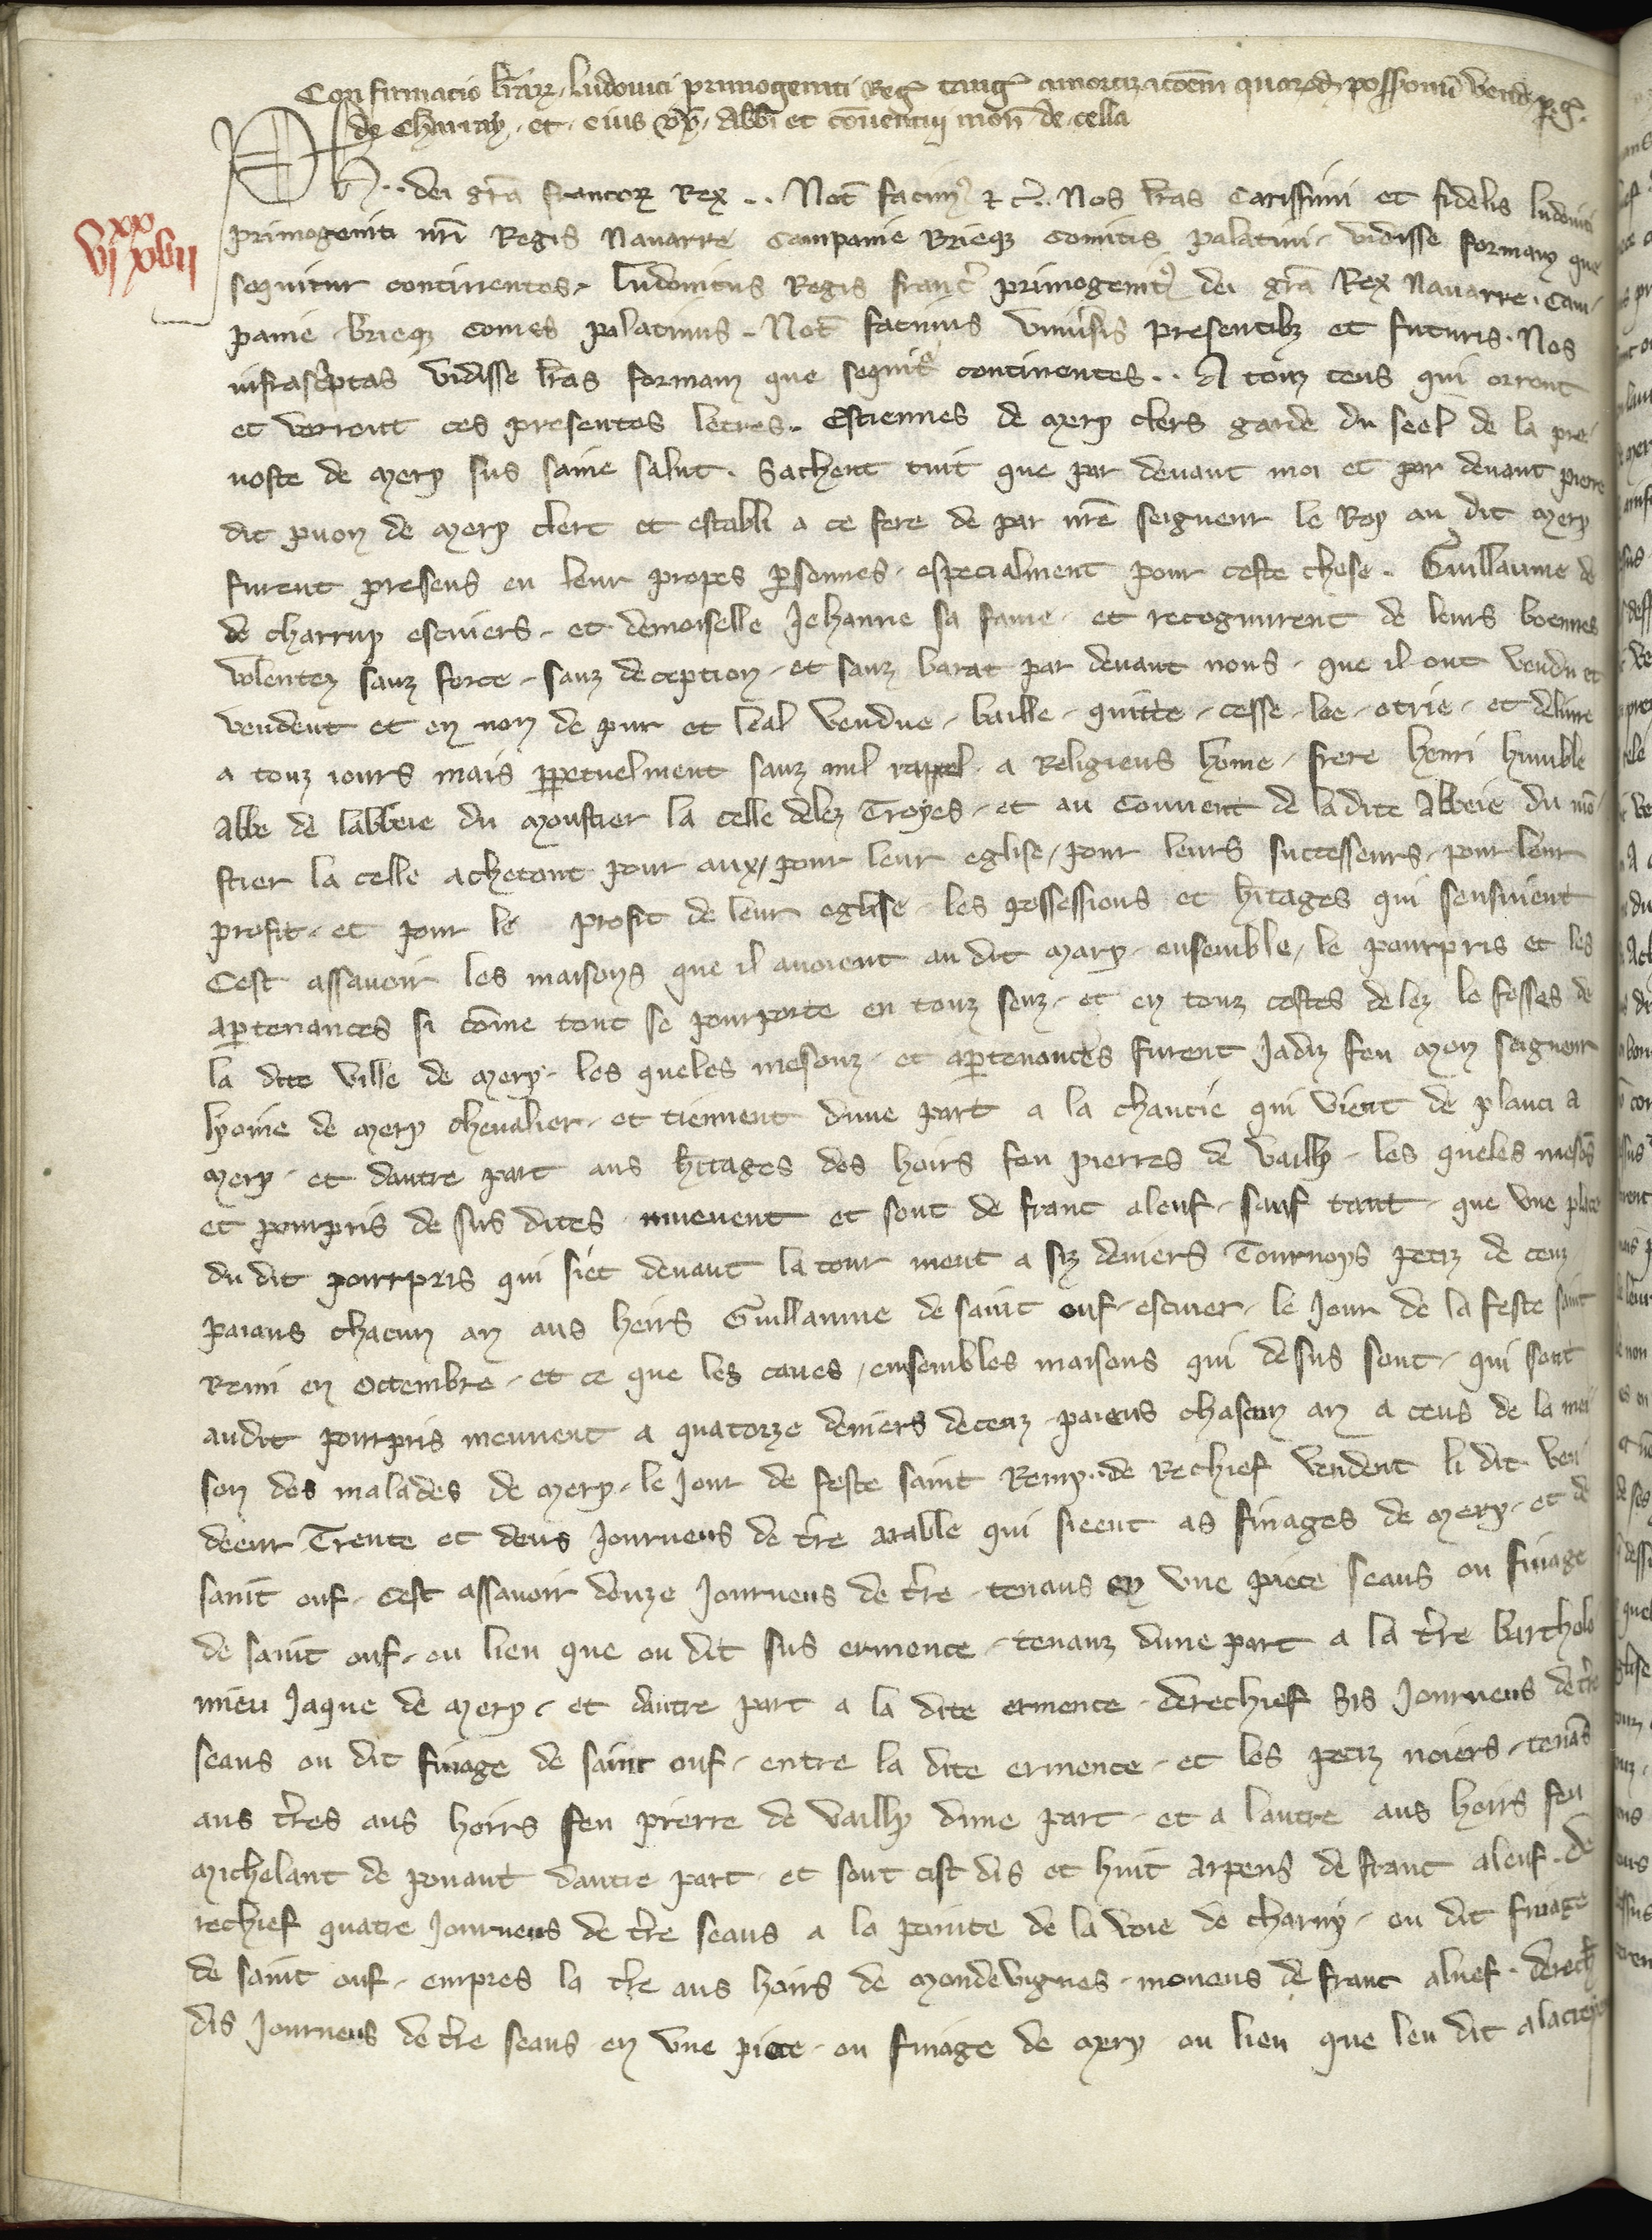 Confirmacio lrarum Ludovici primogeniti Reg̃ tang̃ amortizacõem quarũdã possessionũ vendĩ p G.
de Charny et eius vx̃. Abb̃i et conventui mon̄ de cella
Ph .. dei grã francoꝝ Rex .. Not̃ facimꝰ ⁊ c̃. Nos lr̃as Carissimi et fidelis ludovici
primogeniti nr̃i Regis Nauarre Campanie Brieqꝫ comitis palatini vidisse formam que
vi xx xvii
sequitur continentes. Ludouicus Regis franc̃ primogenitꝰ dei grã Rex Nauarre. Cam-
panie brieqꝫ comes palatinus. Not̃ facimus vniu̇sis presentibꝫ et futuris. Nos
infrasc̃ptas vidisse lr̃as formam que sequit᷑ continentes. A touz ceus qui orront
et verront ces presentes letres. Estiennes de mery clers garde du seel de la pre-
uoste de mery sus saine salut. Sachent tuit que par deuant moi et par deuant pierre
dit puon de mery clerc et establi a ce fere de par nr̃e seigneur le Roy au dit mery
furent presens en leur propes ꝑsonnes especialment pour ceste chose. Guillaume de
de charruy escuiers et demoiselle Jehanne sa fame et recognurent de leurs boennes
volentez sanz force sanz deception et sanz barat par deuant nous que il ont vendu et
vendent et en non de pur et leal vendue baille quitte cesse loe otrie et deliure
a touz iours mais ꝑpetuelment sanz nul rappel a Religieus hõme frere henri humble
abbe de labbeie du moustier la celle delez Troyes et au Couuent de ladite abbeie du mõ-
stier la celle achetont pour aux pour leur eglise pour leurs successeurs pour leur
profit et pour le profit de leur eglise les possessions et hr̃itages qui sensiuent
Cest assauoir les maisons que il auoient au dit mary ensemble le pourpris et les
aꝑtenances si cõme tout se pourporte en touz senz et en touz costes delez le fosses de
la dite ville de mery les queles mesonz et aꝑtenances furent Jadiz feu mon seigneur
lyoine de mery cheualier et tiennent dune part a la chaucie qui vient de planci a
mery et dautre part aus hr̃itages des hoirs feu pierres de vailly les queles mesõs
et pourpris de sus dites muevent et sont de franc aleuf sauf tant que vne place
du dit pourpris qui siet deuant la tour muet a siz deniers Tournoys petiz de cenz
paians chacun an aus heirs Guillaume de saint ouf escuier le Jour de la feste saint
Remi en Octembre et ce que les caues ensembles maisons qui de sus sont qui sont
audit pourpris meuuent a quatorze deniers decenz paiens chascun an a ceus de la mei-
son des malades de mery le Jour de feste saint Remy. de Rechief vendent li dit ven-
deeur Trente et deus Journeus de tr̃e arable qui sieent as finages de mery et de
saint ouf cest assauoir douze Journeus de tr̃e tenans en vne piece seans ou finage
de saint ouf ou lieu que on dit sus ermence tenanz dune part a la tr̃e bartholo
mieu Jaque de mery et dautre part a la dite ermence derechief Sis Journeus de tr̃e
seans ou dit finage de saint ouf entre la dite ermence et les petiz noiers tenãs
aus tr̃es aus hoirs feu pierre de vailly dune part et a lautre aus hoirs feu
michelant de pouant dautre part et sont cist dis et huit arpens de franc aleuf. de
rechief quatre Journeus de tr̃e seans a la pointe de la voie de charny ou dit finage
de saint ouf empres la tr̃e aus hoirs de mondevignes mouens de franc aluef. derech̃
dis Journeus de tr̃e seans en vne piece ou finage de mery ou lieu que len dit